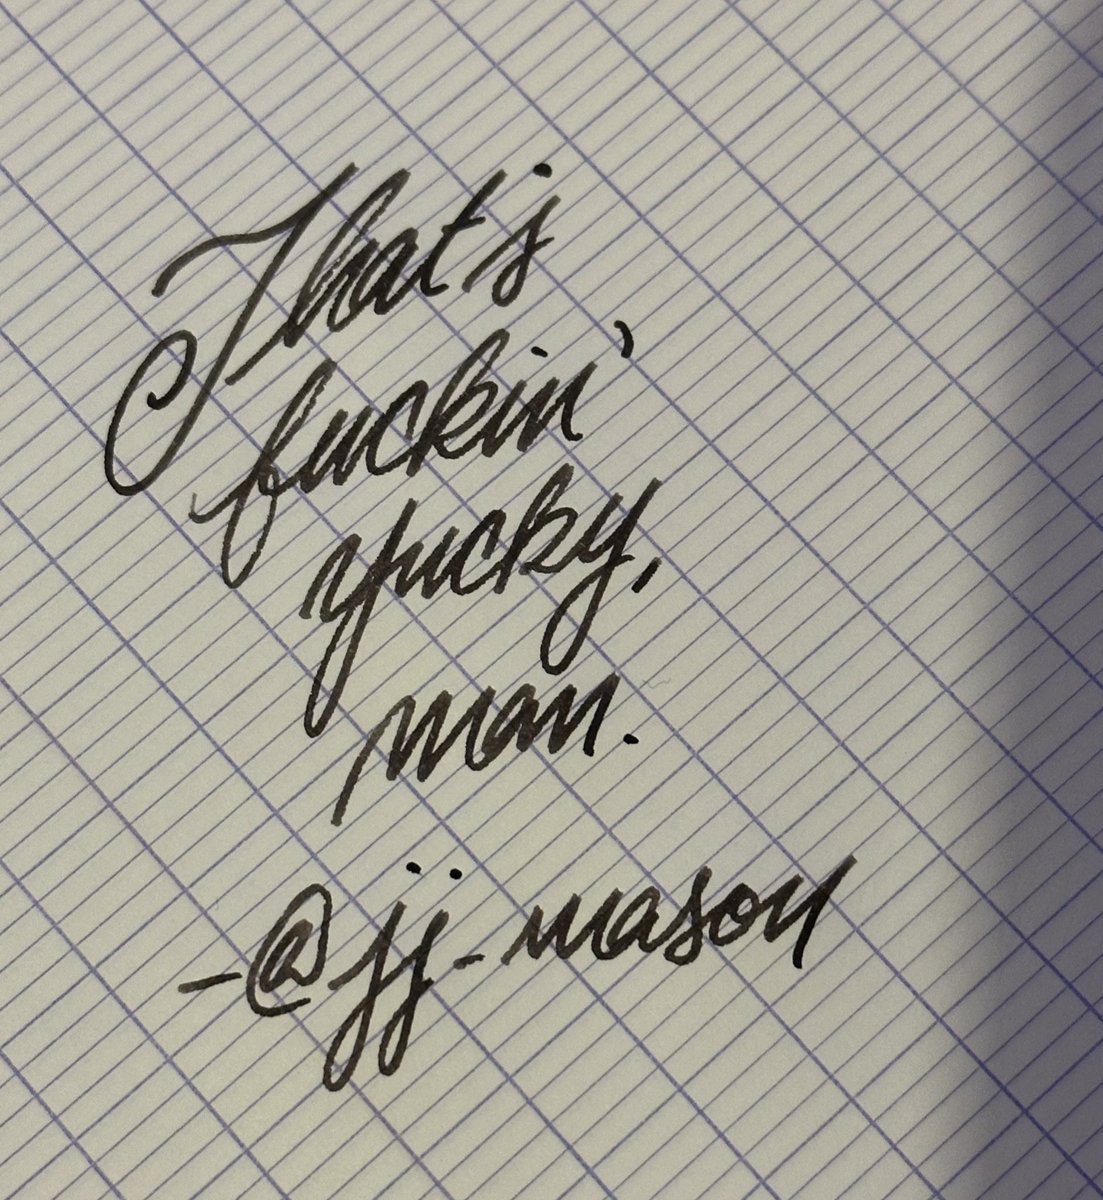 That's
fuckin'
yucky,
man.
-@jj-mason